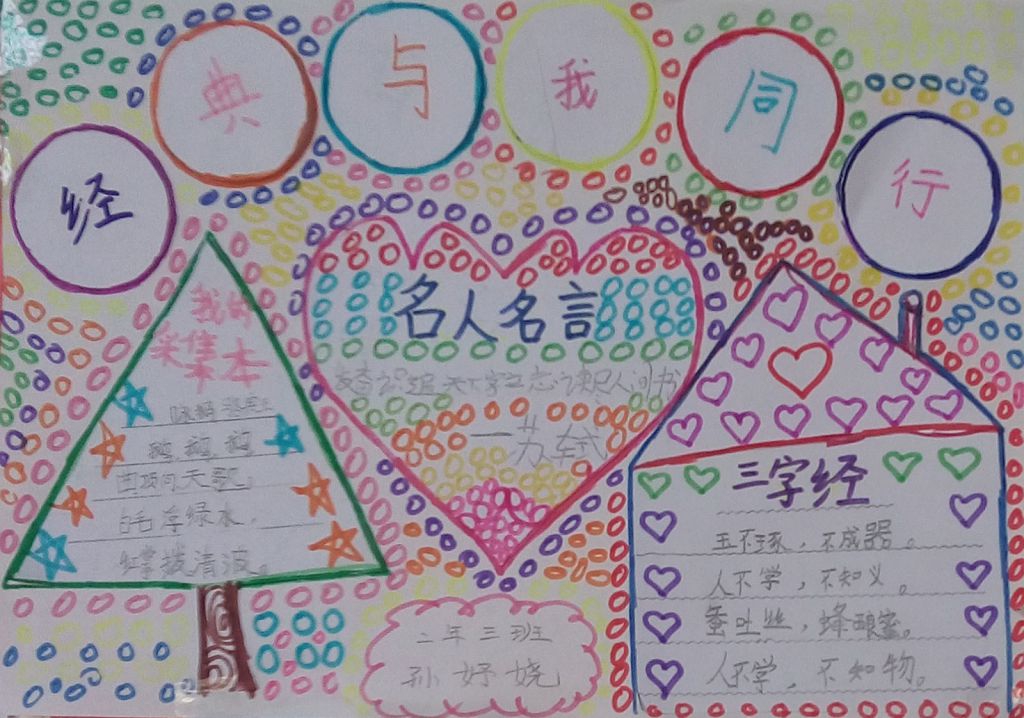 经典与我同行
我的
采集本
咏鹅 骆宾王
鹅,鹅,鹅
曲项向天歌。
白毛浮绿水,
红掌拨清波。
名人名言
天下字 立志 人间书
一苏轼
三字经
玉不琢,不成器。
人不学,不知义。
蚕吐丝,蜂酿蜜。
人不学,不知物。
二年三班
孙妤娆